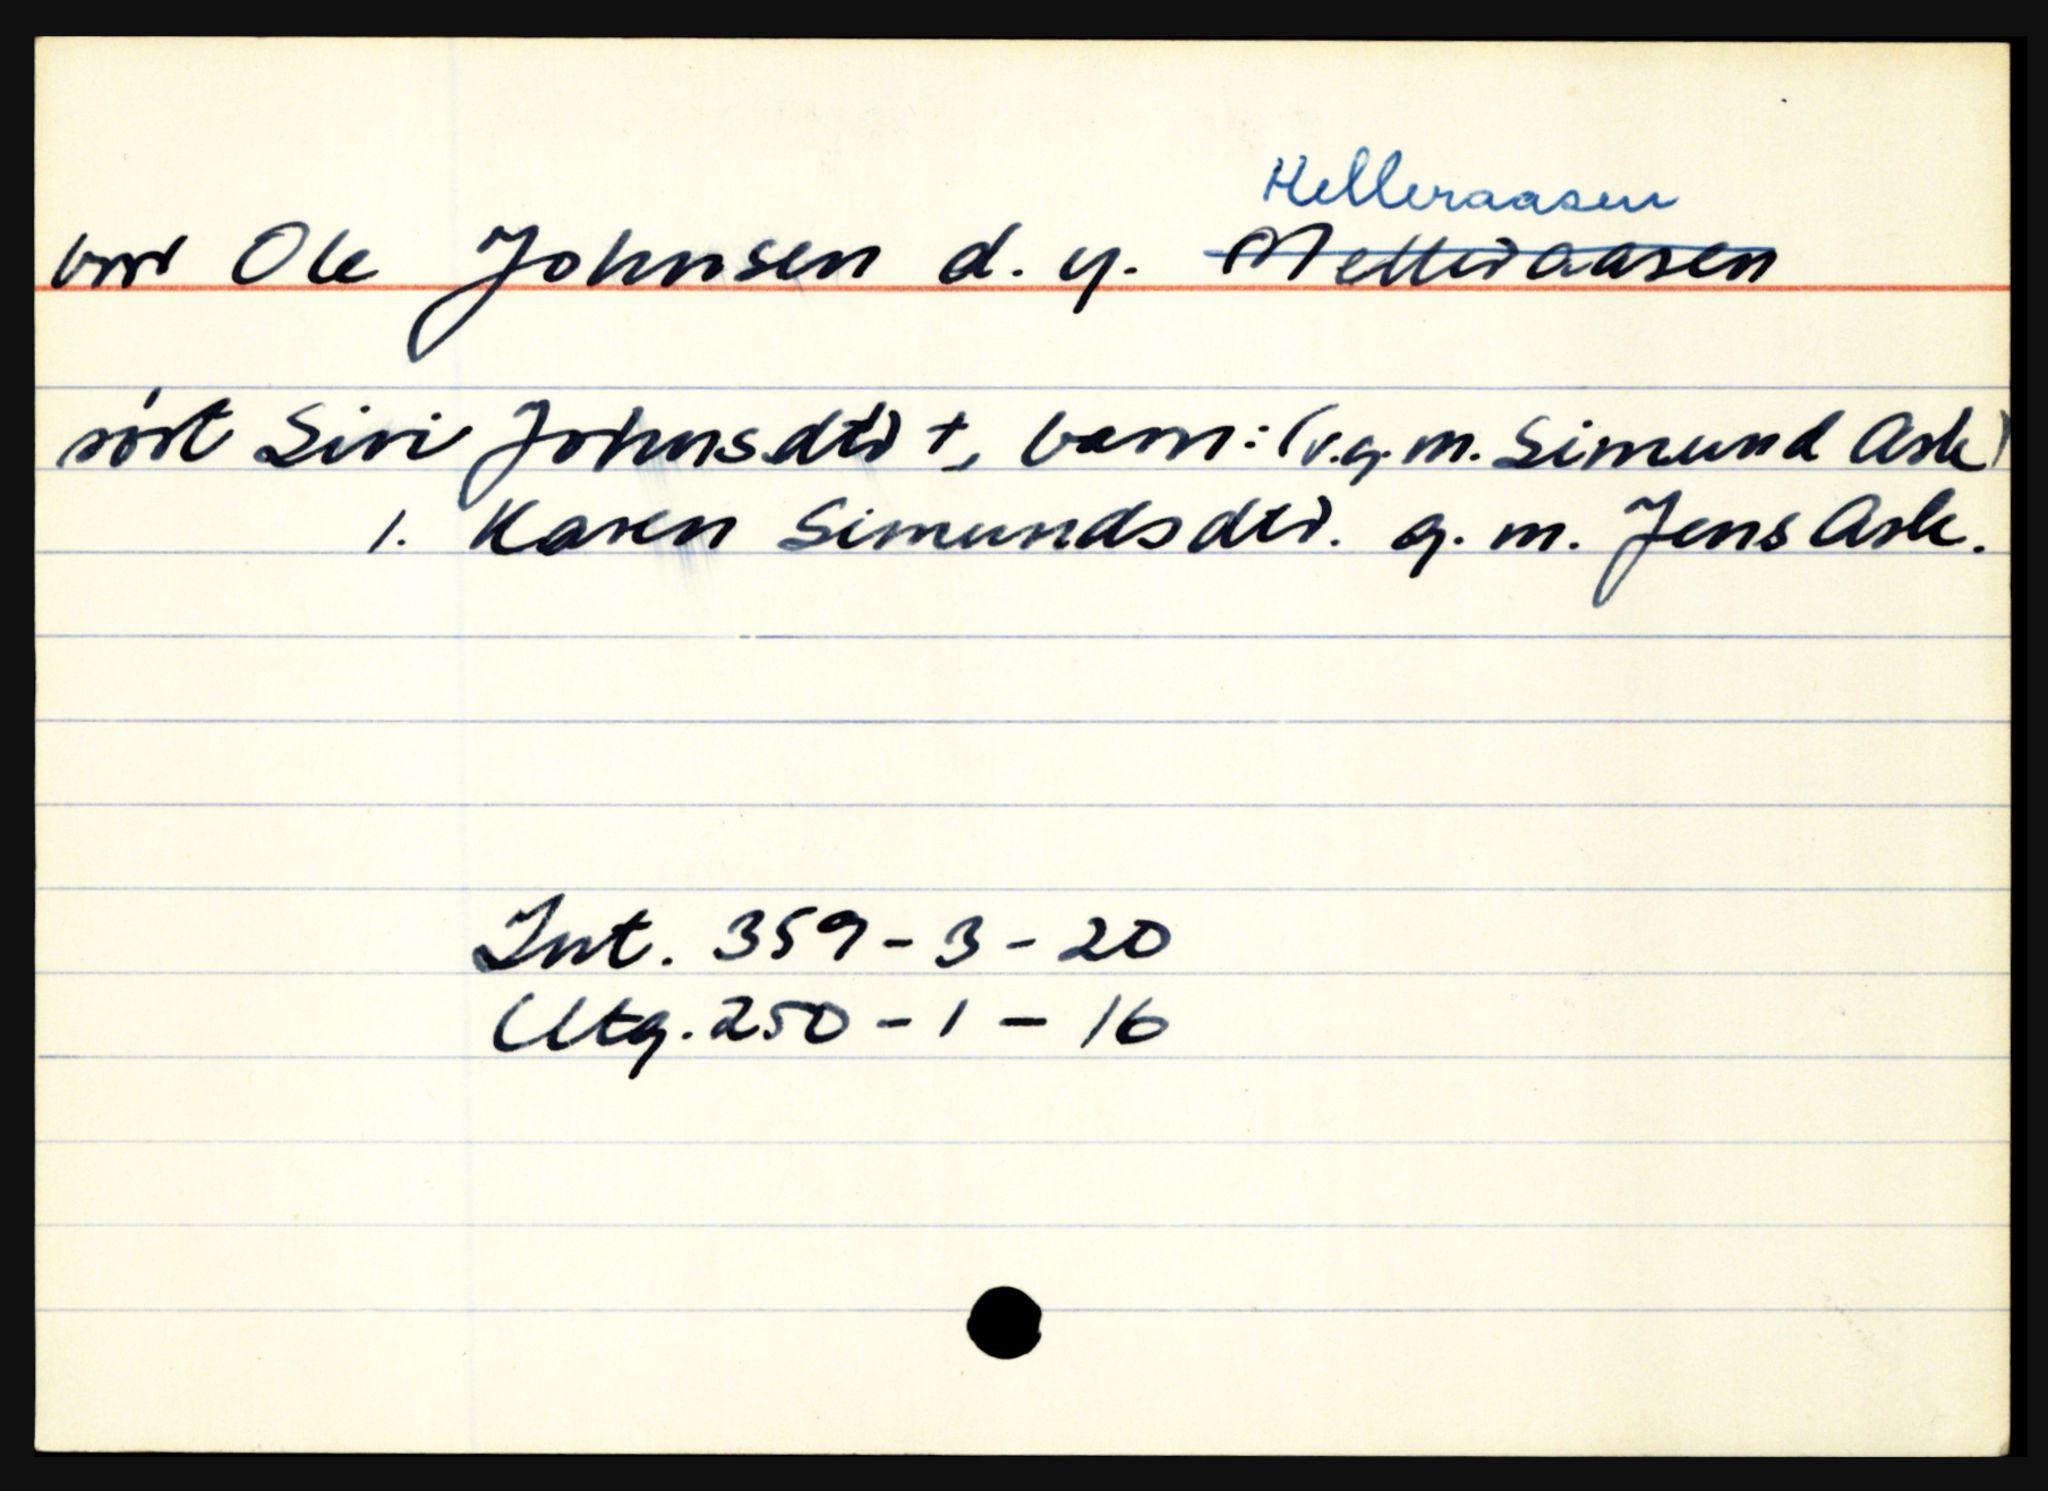 Helleraasen
bror Ole Johnsen d.y. Metteraasen
søst Siri Johnsdtr +, barn: (v.g.m. Simund Ask)
1. Karen Simundsdtr. g. m. Jens Ask.
Int. 359 - 3 - 20
Utg. 250 - 1 - 16